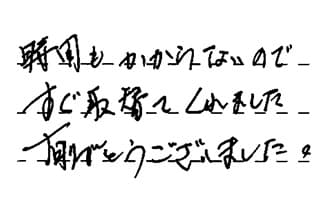 時間もかからないので
すぐ取替てくれました
有りがとうございました。